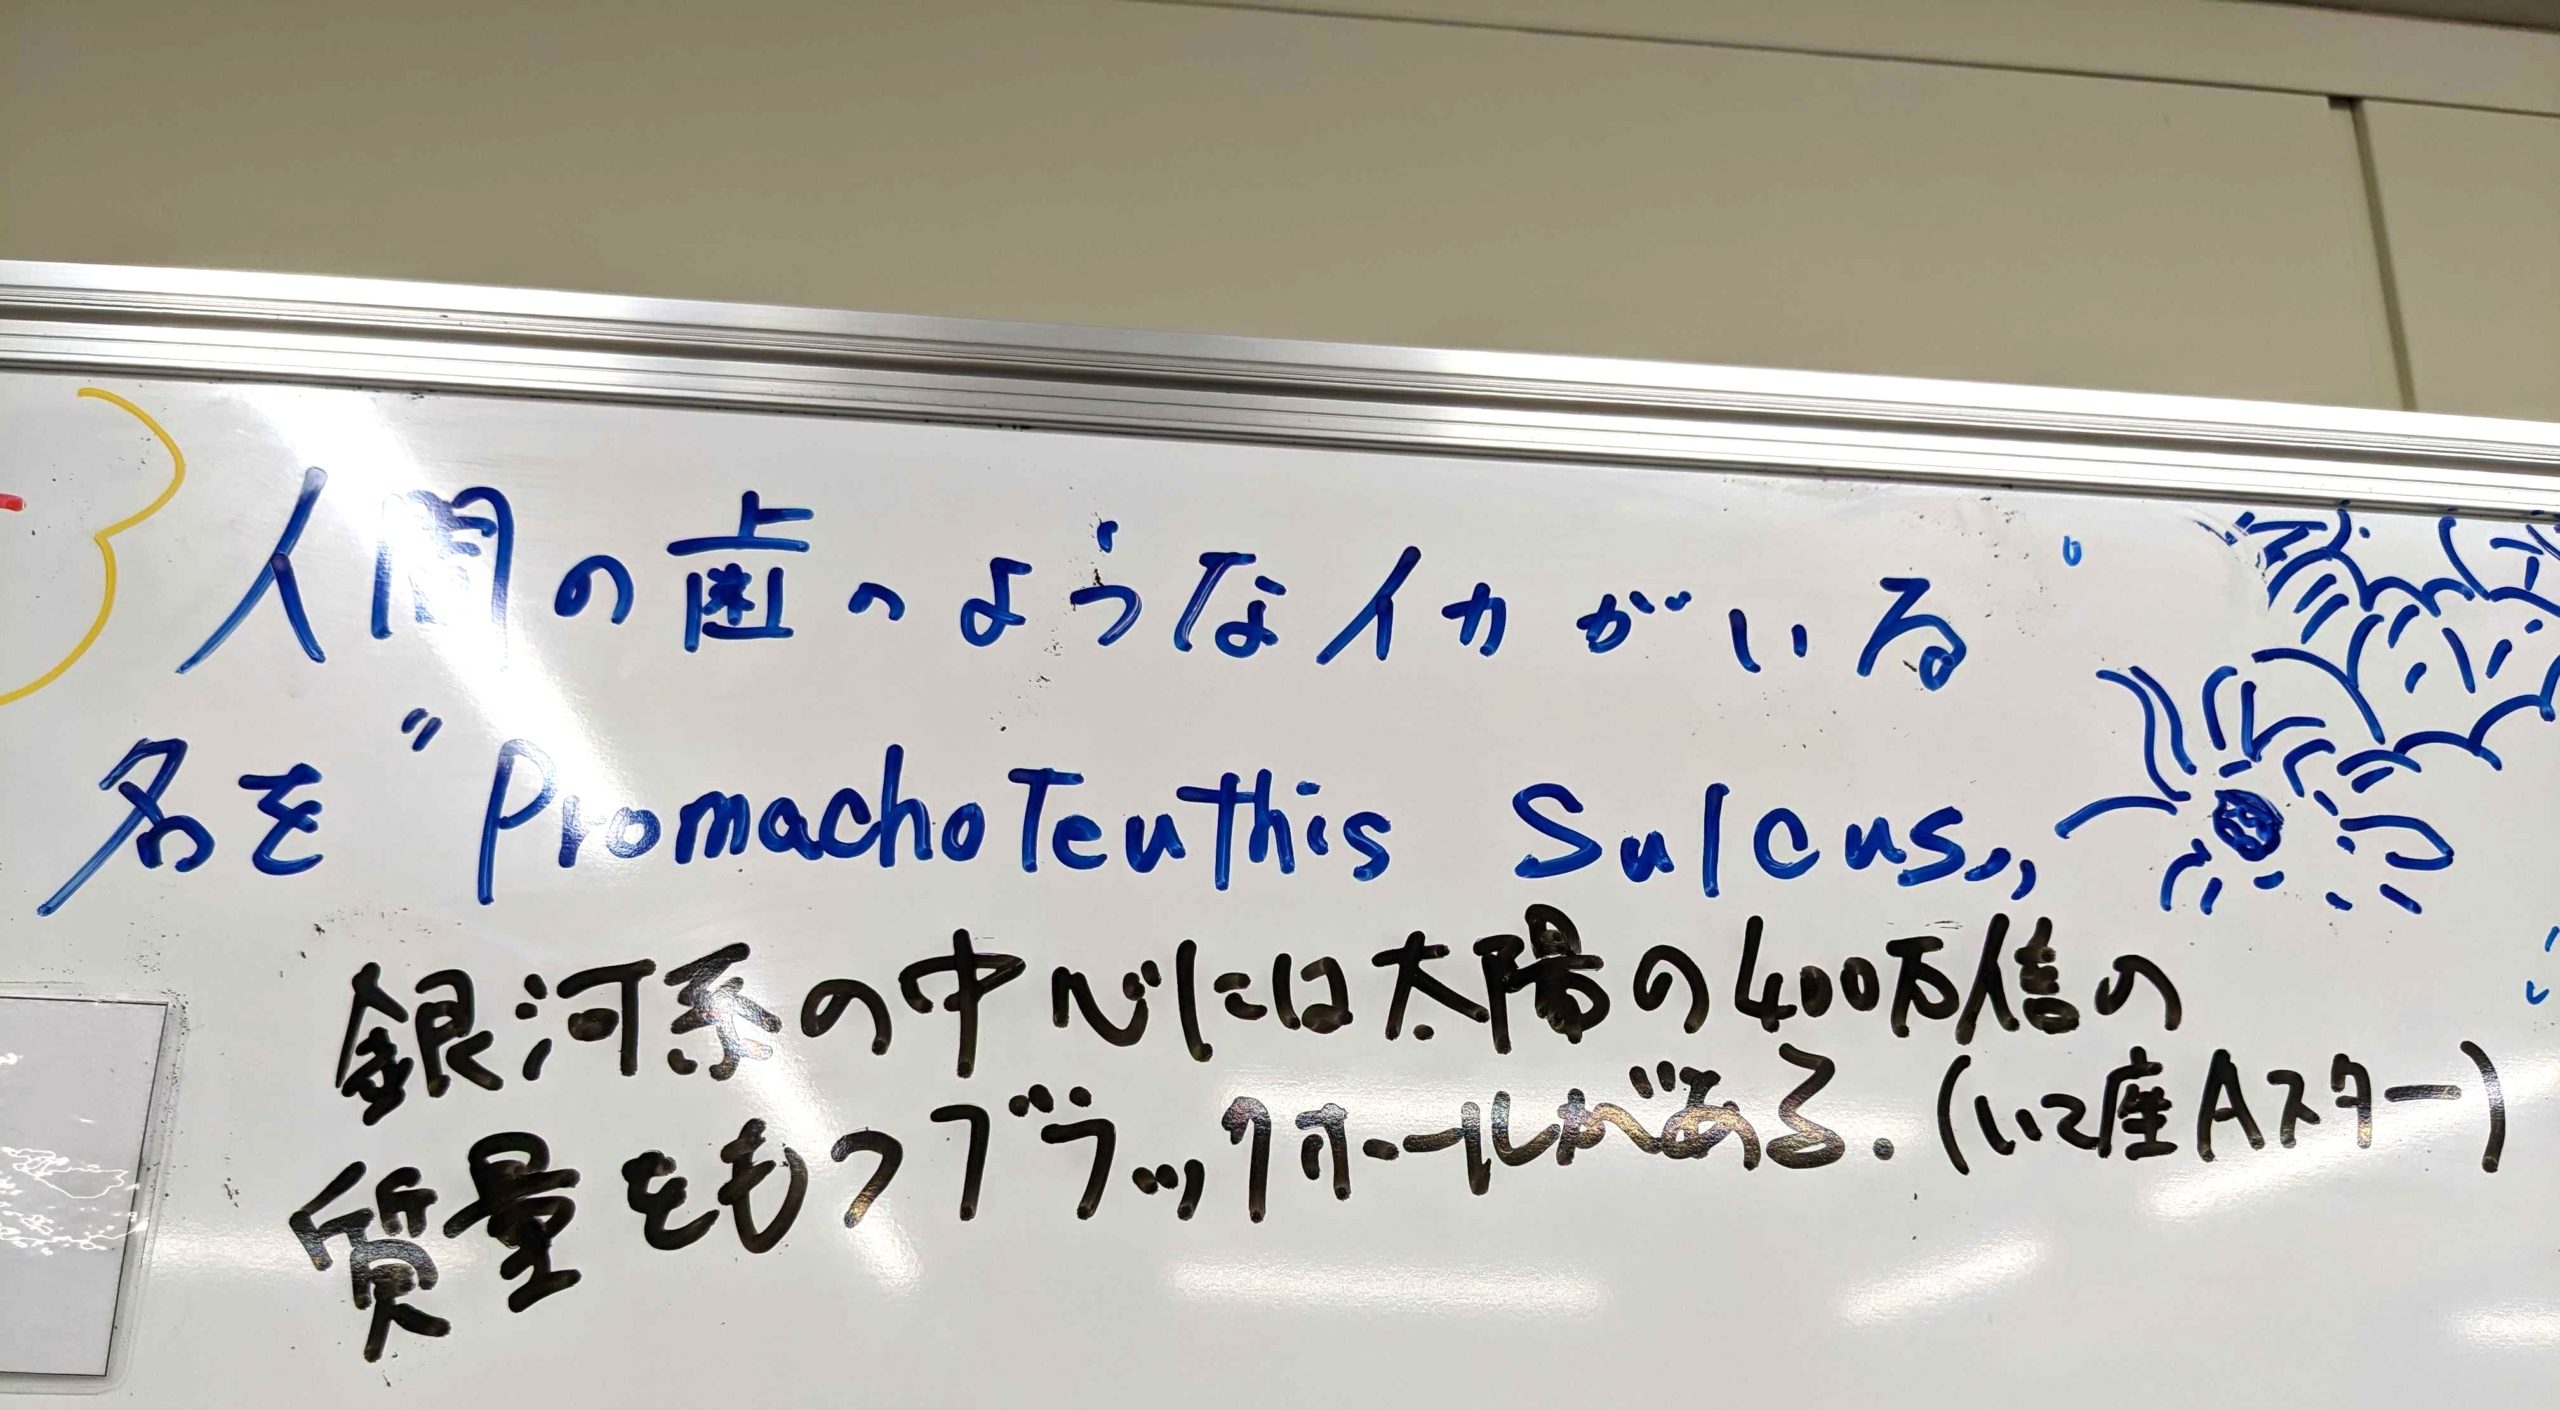 人間の歯のようなイカがいる
名を"PromachoTeuthis Sulcus„
銀河系の中心には太陽の400万倍の
質量をもつブラックホールがある.(いて座Aスター)